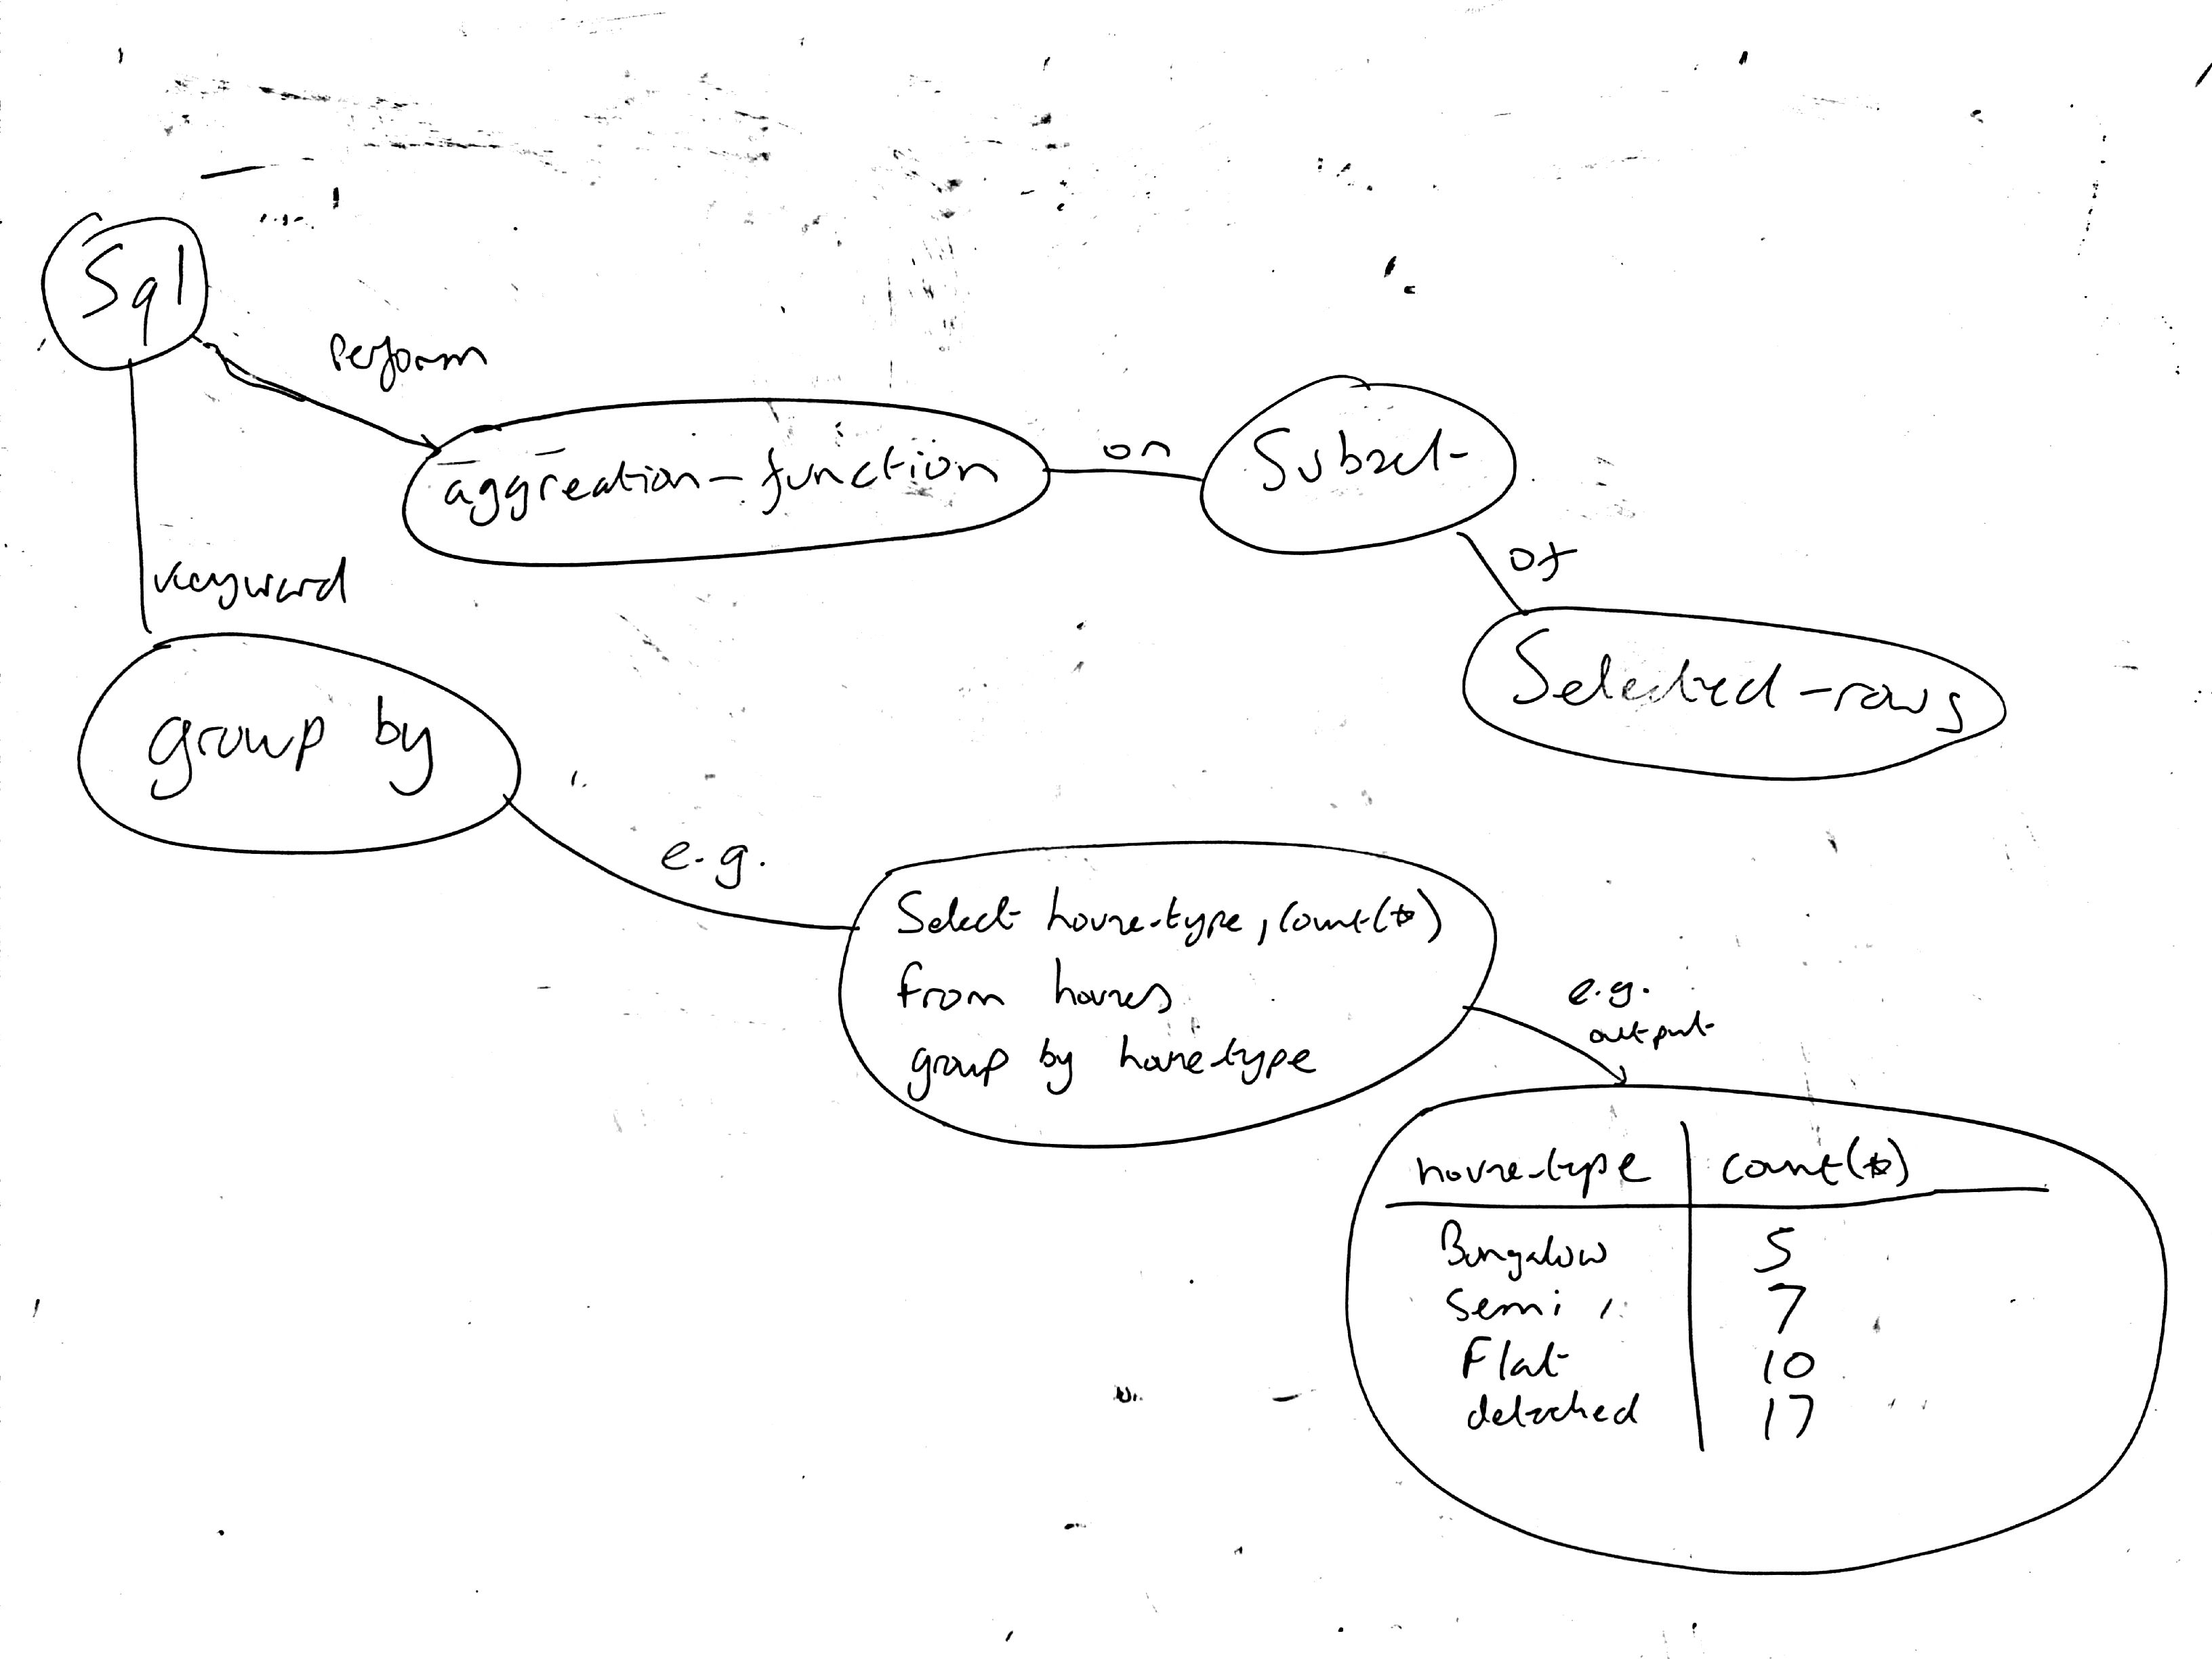 Sql
perform
aggreation-function
on
Subset
of
Selected-rows
keyword
group by
e.g.
Select house-type, count(*)
from houses
group by house-type
e.g.
output
house-type count(*)
Bungalow 5
Semi 7
Flat 10
detached 17